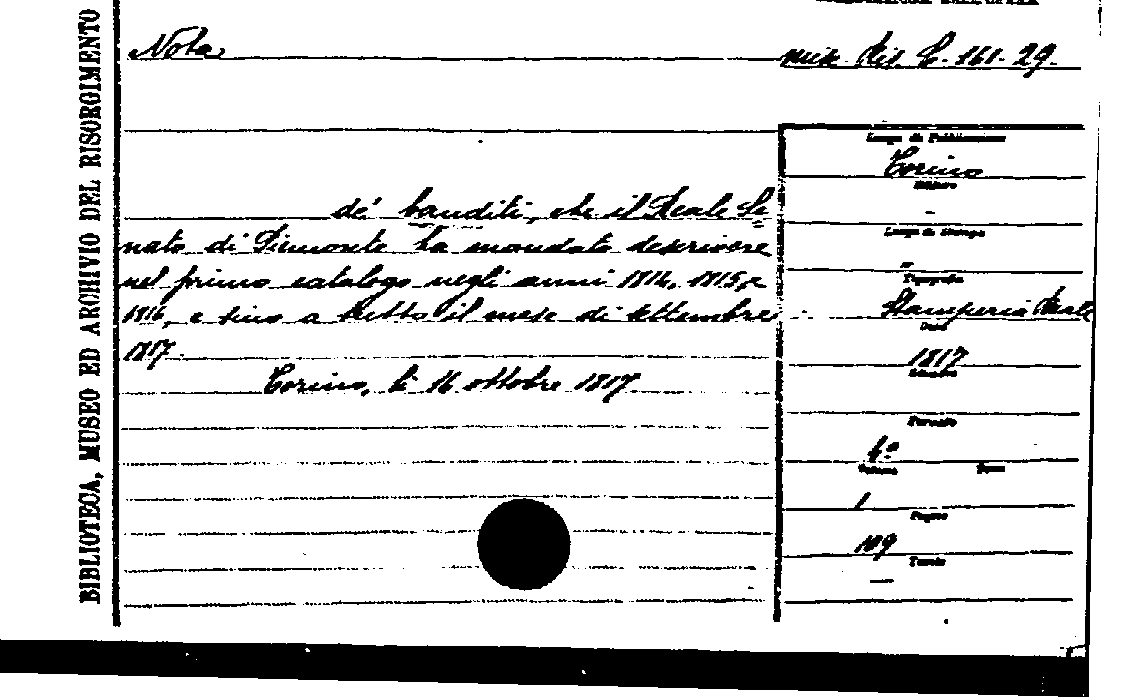 BIBLIOTECA, MUSEO ED ARCHIVIO DEL RISORGIMENTO
Nota
misc. Ris. C. 161. 29.
de' banditi, che il Reale Se
nato di Piemonte ha mandato descrivere
nel primo catalogo negli anni 1814, 1815, e
1816, e sino a tutto il mese di settembre
1817.
Torino, li 16 ottobre 1817.
Luogo di Pubblicazione
Torino
Editore
-
Luogo di Stampa
-
Tipografia
Stamperia Reale
Data
1817
Edizione
Formato
4º
Volume Tomo
1
Pagine
109
Tavole
—